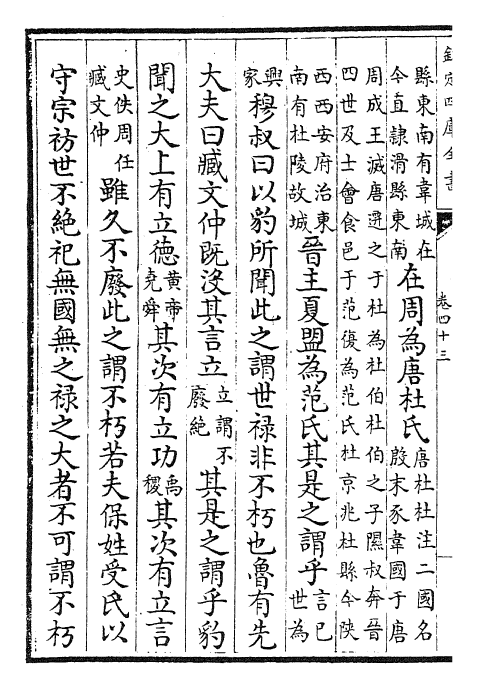 欽定四庫全書
卷四十三
縣東南有韋城在
今直隸滑縣東南
在周為唐杜氏
唐杜杜注二國名
殷末豕韋國于唐
周成王滅唐遷之于杜為杜伯杜伯之子隰叔奔晉
四世及士會食邑于范復為范氏杜京兆杜縣今陝
西西安府治東
南有杜陵故城
晉主夏盟為范氏其是之謂乎
言已
世為
興
家
穆叔曰以豹所聞此之謂世禄非不朽也魯有先
大夫曰臧文仲既沒其言立
立謂不
廢絶
其是之謂乎豹
聞之大上有立德
黄帝
堯舜
其次有立功
禹
稷
其次有立言
史佚周任
臧文仲
雖久不廢此之謂不朽若夫保姓受氏以
守宗祊世不絶祀無國無之禄之大者不可謂不朽